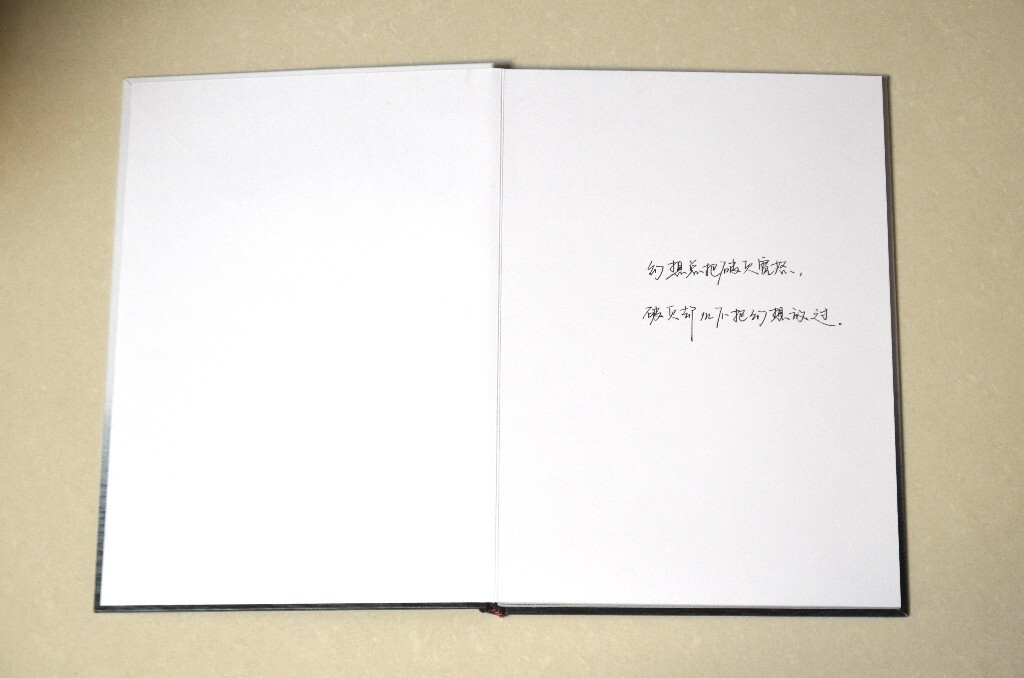 幻想总把破灭宽恕,
破灭却从不把幻想放过。